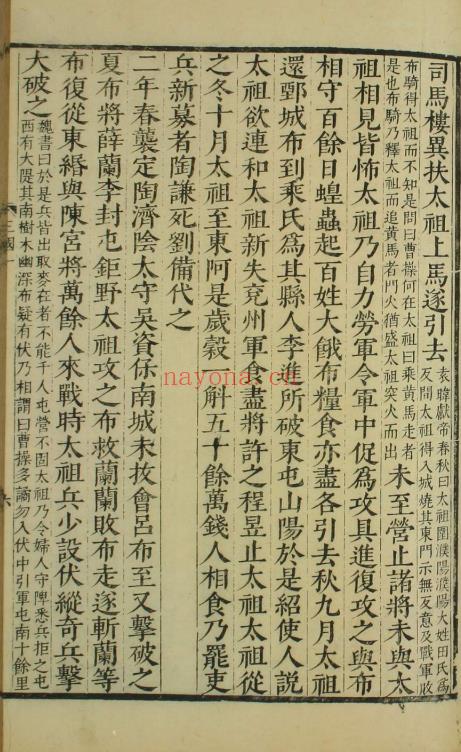 司馬樓異扶太祖上馬遂引去
袁暐獻帝春秋曰太祖圍濮陽濮陽大姓田氏爲
反間太祖得入城燒其東門示無反意及戰軍敗
布騎得太祖而不知是問曰曹操何在太祖曰乘黃馬走者
是也布騎乃釋太祖而追黃馬者門火猶盛太祖突火而出
未至營止諸將未與太
祖相見皆怖太祖乃自力勞軍令軍中促爲攻具進復攻之與布
相守百餘日蝗蟲起百姓大餓布糧食亦盡各引去秋九月太祖
還鄄城布到乘氏爲其縣人李進所破東屯山陽於是紹使人說
太祖欲連和太祖新失兗州軍食盡將許之程昱止太祖太祖從
之冬十月太祖至東阿是歲穀一斛五十餘萬錢人相食乃罷吏
兵新募者陶謙死劉備代之
二年春襲定陶濟陰太守吳資保南城未拔會呂布至又擊破之
夏布將薛蘭李封屯鉅野太祖攻之布救蘭蘭敗布走遂斬蘭等
布復從東緡與陳宮將萬餘人來戰時太祖兵少設伏縱奇兵擊
大破之
魏書曰於是兵皆出取麥在者不能千人屯營不固太祖乃令婦人守陴悉兵拒之屯
西有大隄其南樹木幽深布疑有伏乃相謂曰曹操多譎勿入伏中引軍屯南十餘里
三國一
六
nayona.cn